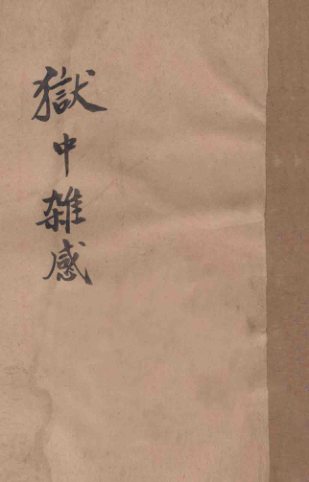 獄中雜感